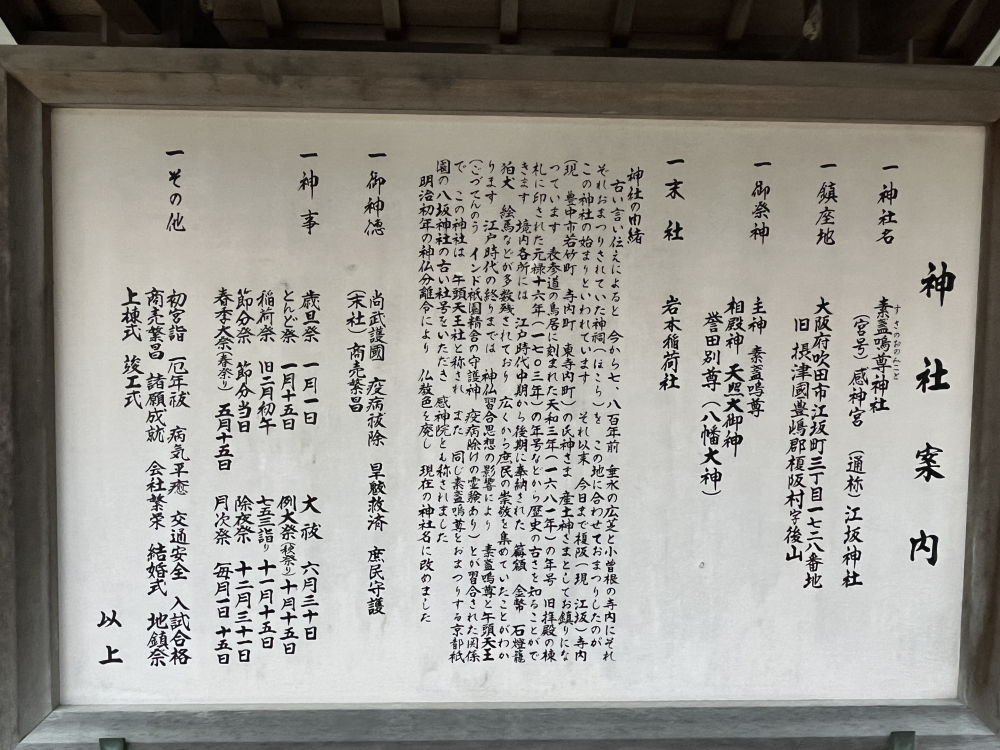 神社案内
一 神社名 素盞嗚尊神社
すさのおのみこと
(宮号) 感神宮 (通称) 江坂神社
一 鎮座地 大阪府吹田市江坂町三丁目一七二八番地
旧 摂津國豊嶋郡榎阪村字後山
一 御祭神 主神 素盞嗚尊
相殿神 天照大御神
誉田別尊(八幡大神)
一 末社 岩本稲荷社
神社の由緒
古い言い伝えによると 今から七、八百年前 垂水の広芝と小曽根の寺内にそれ
それおまつりされていた神祠(ほこら)を この地に合わせておまつりしたのが
この神社の始まりといわれています それ以来 今日まで榎阪(現 江坂)寺内
(現 豊中市若竹町 寺内町 東寺内町)の氏神さま 産土神さまとしてお鎮りにな
っています 表参道の鳥居に刻まれた天和三年(一六八一年)の年号 旧拝殿の棟
札に印された元禄十六年(一七〇三年)の年号などから歴史の古さを知ることがで
きます 境内各所には 江戸時代中期から後期に奉納された 扁額 金幣 石燈籠
狛犬 絵馬などが多数残されており 広くから庶民の崇敬を集めていたことがわか
ります 江戸時代の終りまでは 神仏習合思想の影響により 素盞嗚尊と午頭天王
(ごづてんのう インド祇園精舎の守護神 疫病除けの霊験あり)とが習合された関係
で この神社は 午頭天王社と称され また 同じ素盞嗚尊とおまつりする京都祇
園の八坂神社の古い社号をいただき 感神院とも称されました
明治初年の神仏分離令により 仏教色を廃し 現在の神社名に改めました
一 御神徳 尚武護國 疫病祓除 旱魃救済 庶民守護
(末社) 商売繁昌
一 神事 歳旦祭 一月一日 大祓 六月三十日
とんど祭 一月十五日 例大祭(秋祭り) 十月十五日
稲荷祭 旧二月初午 七五三詣り 十一月十五日
節分祭 節分当日 除夜祭 十二月三十一日
春季大祭(春祭り) 五月十五日 月次祭 毎月一日 十五日
一 その他 初宮詣 厄年祓 病気平癒 交通安全 入試合格
商売繁昌 諸願成就 会社繁栄 結婚式 地鎮祭
上棟式 竣工式
以上